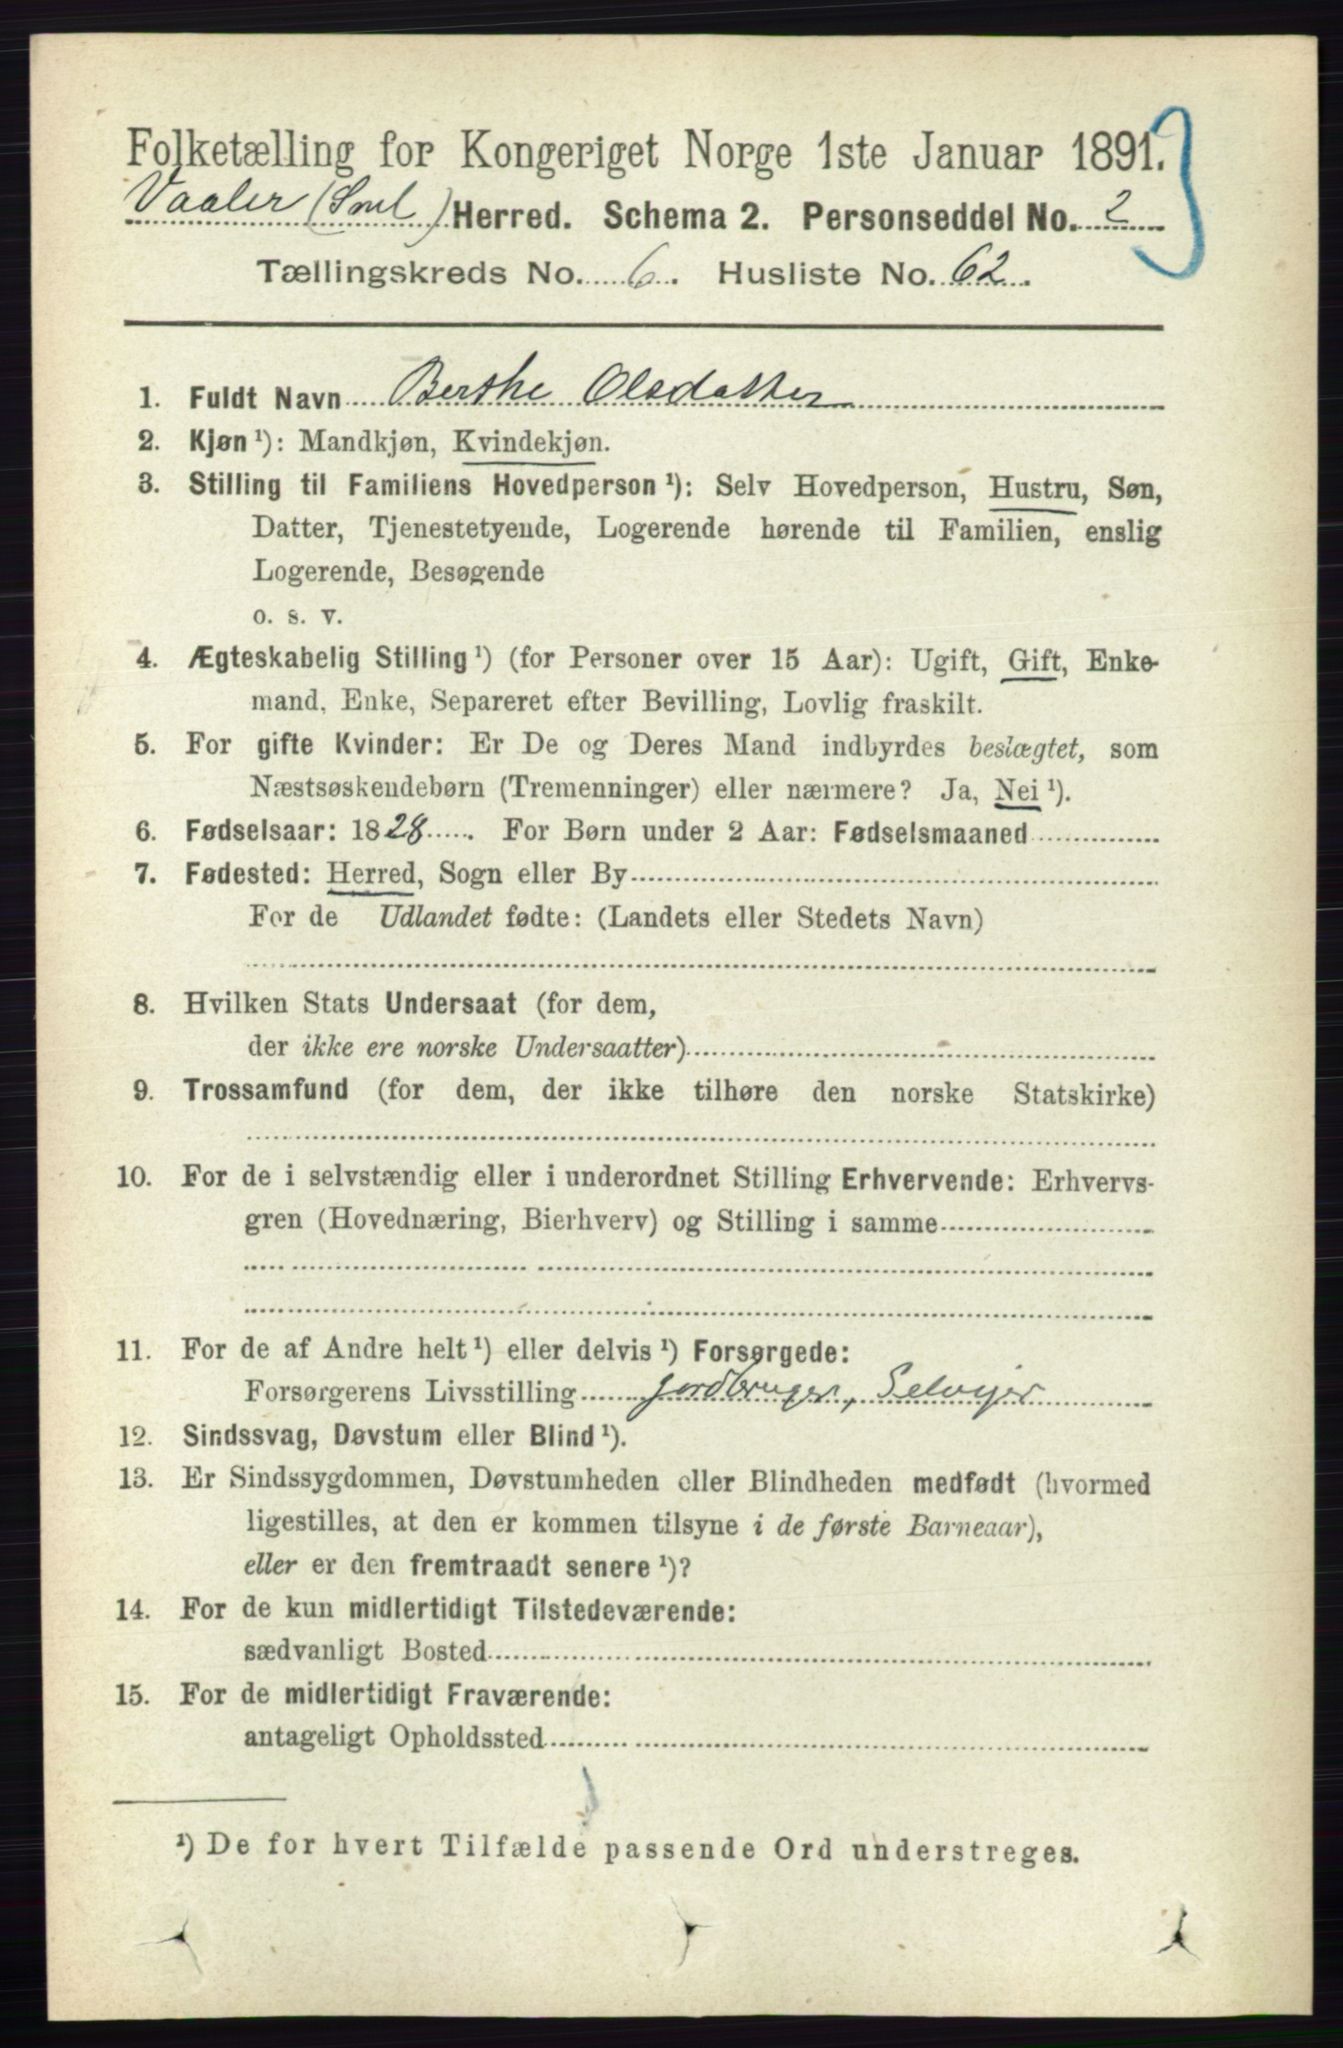 Folketælling for Kongeriget Norge 1ste Januar 1891.
Vaaler (Sml.) Herred. Schema 2. Personseddel No. 2
Tællingskreds No. 6. Husliste No. 62.
1. Fuldt Navn Berthe Olsdatter
2. Kjøn ¹): Mandkjøn, Kvindekjøn.
3. Stilling til Familiens Hovedperson ¹): Selv Hovedperson, Hustru, Søn,
Datter, Tjenestetyende, Logerende hørende til Familien, enslig
Logerende, Besøgende
o. s. v.
4. Ægteskabelig Stilling ¹) (for Personer over 15 Aar): Ugift, Gift, Enke-
mand, Enke, Separeret efter Bevilling, Lovlig fraskilt.
5. For gifte Kvinder: Er De og Deres Mand indbyrdes beslægtet, som
Næstsøskendebørn (Tremenninger) eller nærmere? Ja, Nei ¹).
6. Fødselsaar: 1828. For Børn under 2 Aar: Fødselsmaaned
7. Fødested: Herred, Sogn eller By
For de Udlandet fødte: (Landets eller Stedets Navn)
8. Hvilken Stats Undersaat (for dem,
der ikke ere norske Undersaatter)
9. Trossamfund (for dem, der ikke tilhøre den norske Statskirke)
10. For de i selvstændig eller i underordnet Stilling Erhvervende: Erhvervs-
gren (Hovednæring, Bierhverv) og Stilling i samme
11. For de af Andre helt ¹) eller delvis ¹) Forsørgede:
Forsørgerens Livsstilling Jordbruger, Selveier
12. Sindssvag, Døvstum eller Blind ¹).
13. Er Sindssygdommen, Døvstumheden eller Blindheden medfødt (hvormed
ligestilles, at den er kommen tilsyne i de første Barneaar),
eller er den fremtraadt senere ¹)?
14. For de kun midlertidigt Tilstedeværende:
sædvanligt Bosted
15. For de midlertidigt Fraværende:
antageligt Opholdssted
¹) De for hvert Tilfælde passende Ord understreges.